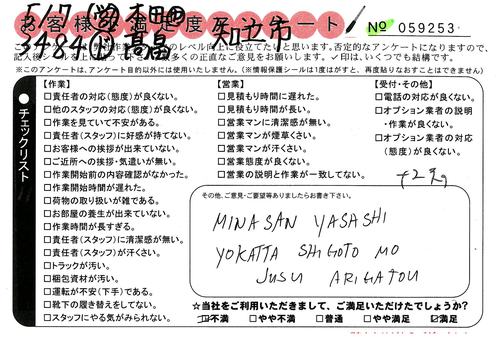 お客様満足度アンケート
5/17 本田
3484 高畠 知立市
№ 059253
チェックリスト
※このアンケートは、アンケート目的以外には使用いたしません。(※情報保護シールは1度はがすと、再度貼りなおすことはできません)
【作業】
□責任者の対応(態度)が良くない。
□他のスタッフの対応(態度)が良くない。
□作業を見ていて不安がある。
□責任者(スタッフ)に好感が持てない。
□お客様への挨拶が出来ていない。
□ご近所への挨拶・気遣いが無い。
□作業開始前の内容確認がなかった。
□作業開始時間が遅れた。
□荷物の取り扱いが雑である。
□お部屋の養生が出来ていない。
□作業時間が長すぎる。
□責任者(スタッフ)に清潔感が無い。
□責任者(スタッフ)が汗くさい。
□トラックが汚い。
□梱包資材が汚い。
□運転が不安(下手)である。
□靴下の履き替えをしてない。
□スタッフにやる気がみられない。
【営業】
□見積もり時間に遅れた。
□見積もり時間が長い。
□営業マンに清潔感が無い。
□営業マンが煙草くさい。
□営業マンが汗くさい。
□営業態度が良くない。
□営業の説明と作業が一致してない。
【受付・その他】
□電話の対応が良くない。
□オプション業者の説明
・作業が良くない。
□オプション業者の対応
(態度)が良くない。
その他、ご意見・ご要望等ありましたらお書き下さい。
MINASAN YASASHI
YOKATTA SHIGOTO MO
JUSU ARIGATOU
☆当社をご利用いただきまして、ご満足いただけたでしょうか?
□不満 □やや不満 □普通 □やや満足 ☑満足